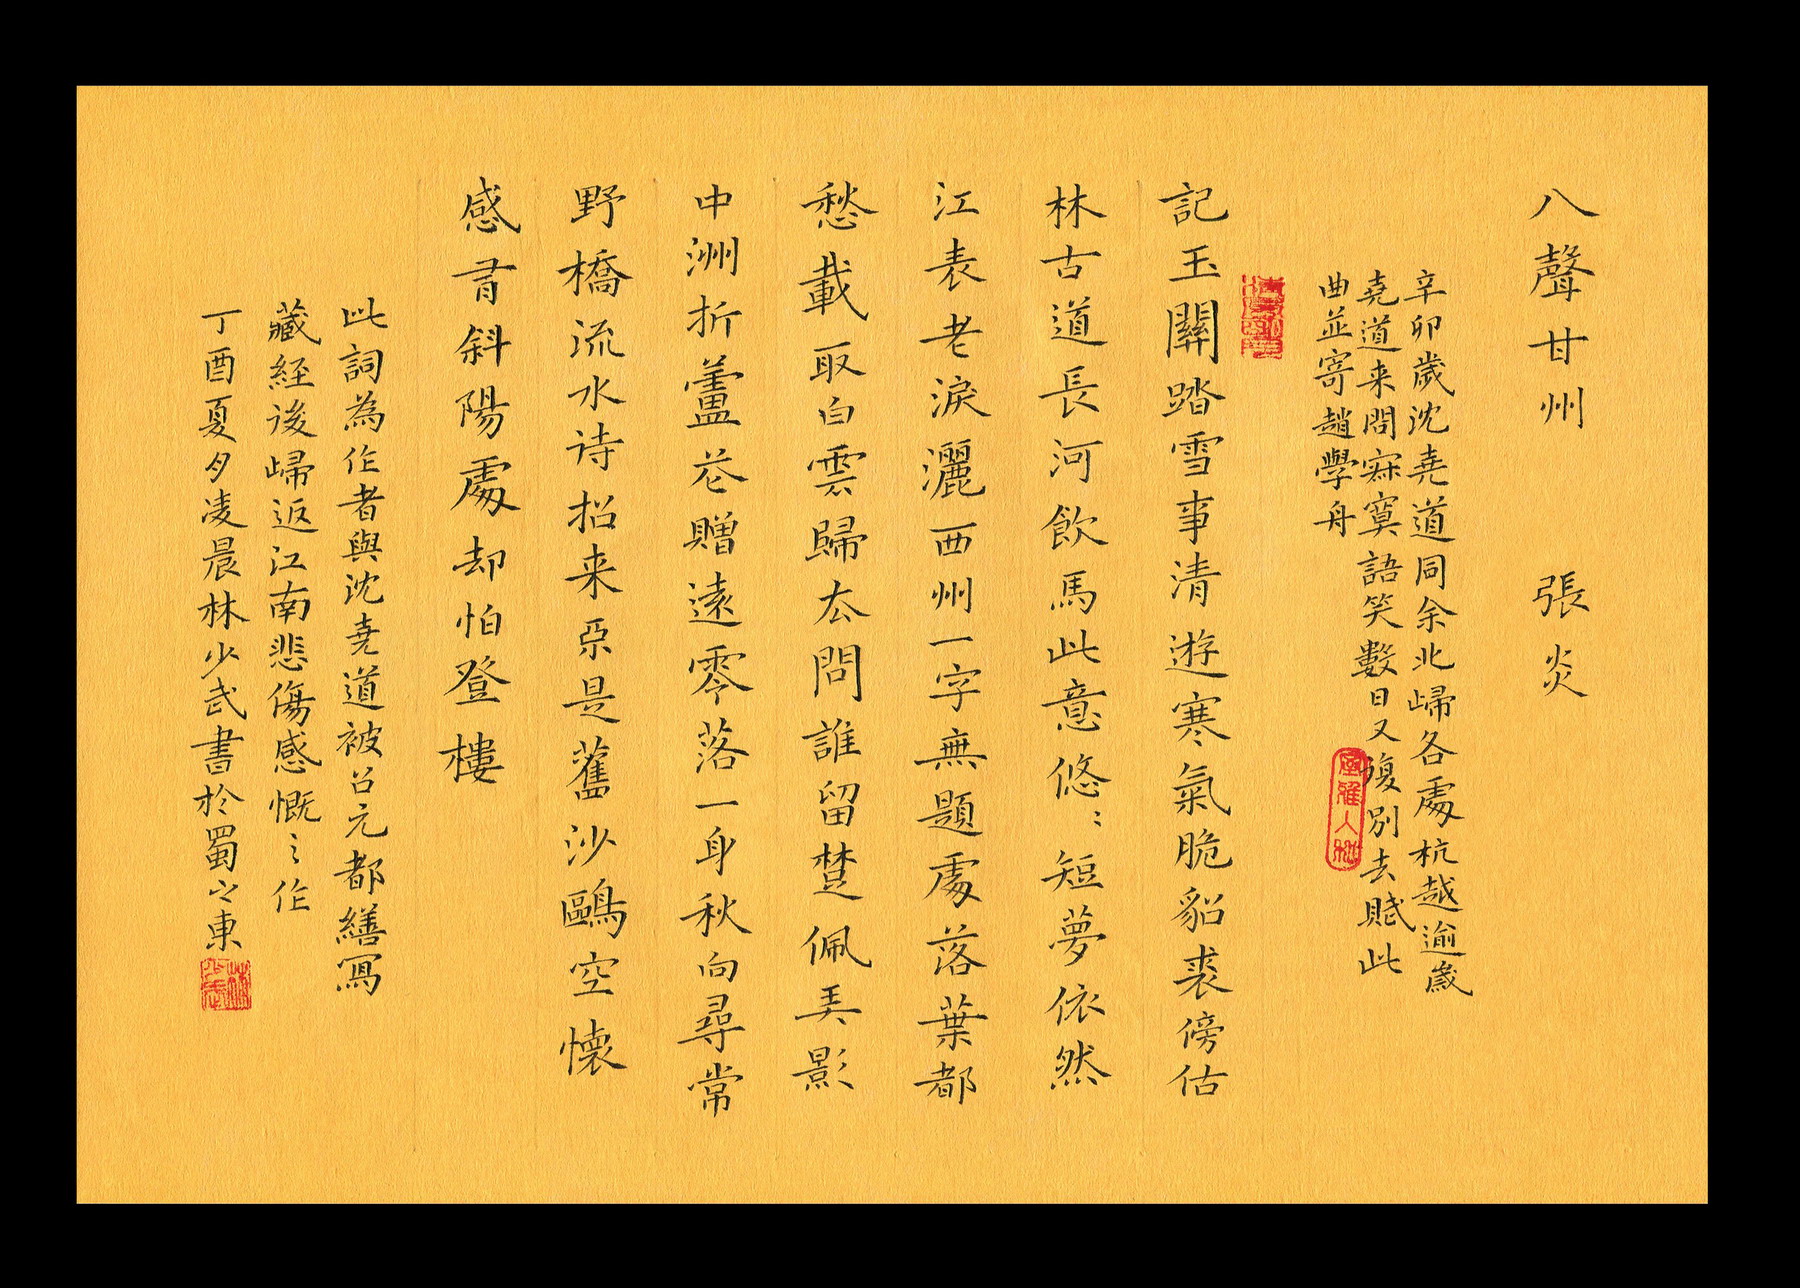 八聲甘州　張炎
辛卯歲沈堯道同余北歸各處杭越逾歲
堯道来問寂寞語笑數日又復別去賦此
曲並寄趙學舟
記玉關踏雪事清遊寒氣脆貂裘傍枯
林古道長河飲馬此意悠〻短夢依然
江表老淚灑西州一字無題處落葉都
愁載取白雲歸去問誰留楚佩弄影
中洲折蘆花贈遠零落一身秋向尋常
野橋流水待招来不是舊沙鷗空懷
感有斜陽處却怕登樓
此詞為作者與沈堯道被召元都繕寫
藏經後歸返江南悲傷感慨之作
丁酉夏夕凌晨林少武書於蜀之東